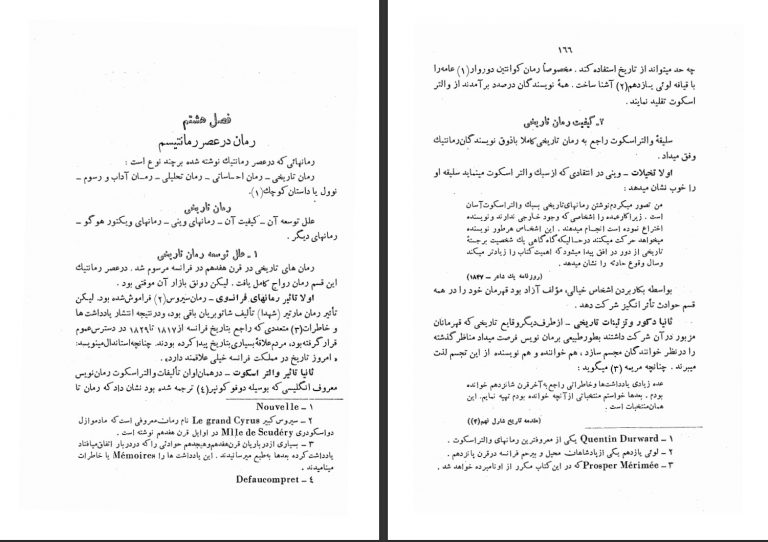 فصل هشتم
رمان در عصر رمانتیسم
رمانهائی که در عصر رمانتیك نوشته شده بر چند نوع است :
رمان تاریخی ـ رمان احساساتی ـ رمان تحلیلی ـ رمان آداب و رسوم ـ
نوول یا داستان کوچك(۱).
رمان تاریخی
علل توسعه آن ـ کیفیت آن ـ رمانهای وینی ـ رمانهای ویکتور هوگو ـ
رمانهای دیگر .
۱ ـ علل توسعه رمان تاریخی
رمان های تاریخی در قرن هفدهم در فرانسه مرسوم شد . در عصر رمانتیك
این قسم رمان رواج کامل یافت . لیکن رونق بازار آن موقتی بود .
اولا تاثیر رمانهای فرانسوی ـ رمان سیروس(۲) فراموش شده بود. لیکن
تأثیر رمان مارتیر (شهدا) تألیف شاتوبریان باقی بود، و در نتیجه انتشار یادداشت ها
و خاطرات(۳) متعددی که راجع بتاریخ فرانسه از ۱۸۱۷ تا ۱۸۲۹ در دسترس عموم
قرار گرفته بود، مردم علاقۀ بسیاری بتاریخ پیدا کرده بودند. چنانچه استاندال مینویسد:
« امروز تاریخ در مملکت فرانسه خیلی علاقمند دارد.
ثانیا تاثیر والتر اسکوت ـ در همان اوان تألیفات والتر اسکوت رمان نویس
معروف انگلیسی که بوسیله دوفو کونپر(٤) ترجمه شده بود نشان داد که رمان تا
۱ ـ Nouvelle
۲ ـ سیروس کبیر Le grand Cyrus نام رمان معروفی است که مادموازل
دو اسکودری Mlle de Scudéry در اوایل قرن هفدهم نوشته است .
۳ ـ بسیاری از درباریان قرن هفدهم و هیجدهم حوادثی را که در دربار اتفاق میافتاد
یادداشت کرده بعدها به طبع میرسانیدند. این یادداشت ها را Mémoires یا خاطرات
مینامیدند .
٤ ـ Defaucompret
۱۶۶
چه حد میتواند از تاریخ استفاده کند . مخصوصاً رمان کوانتین دوروار(۱) عامه را
با قیافه لوئی یازدهم(۲) آشنا ساخت . همۀ نویسندگان درصدد برآمدند از والتر
اسکوت تقلید نمایند .
۲ـ کیفیت رمان تاریخی
سلیقۀ والتر اسکوت راجع به رمان تاریخی کاملا باذوق نویسندگان رمانتیك
وفق میداد.
اولا تخیلات ـ وینی در انتقادی که از سبك والتر اسکوت مینماید سلیقه او
را خوب نشان میدهد :
من تصور میکردم نوشتن رمانهای تاریخی بسبك والتر اسکوت آسان
است . زیرا کار عمده را اشخاصی که وجود خارجی ندارند و نویسنده
اختراع نموده است انجام میدهند . این اشخاص هر طور نویسنده
میخواهد حرکت میکنند در حالیکه گاه گاهی یك شخصیت برجستۀ
تاریخی از دور در افق پیدا میشود که اهمیت کتاب را زیادتر میکند
و سال وقوع حادثه را نشان میدهد .
(روزنامه یك شاعر ـ ۱۸۴۷)
بواسطه بکار بردن اشخاص خیالی، مؤلف آزاد بود قهرمان خود را در همه
قسم حوادث تأثر انگیز شرکت دهد .
ثانیا دکور و تزئینات تاریخی ـ از طرف دیگر وقایع تاریخی که قهرمانان
مزبور در آن شرکت داشتند بطور طبیعی برمان نویس فرصت میداد مناظر گذشته
را در نظر خوانندگان مجسم سازد ، هم خواننده و هم نویسنده از این تجسم لذت
میبرند . چنانچه مریمه (۳) میگوید :
عده زیادی یادداشت‌ها و خاطراتی راجع به آخر قرن شانزدهم خوانده
بودم . بعدها خواستم منتخباتی از آنچه خوانده بودم تهیه نمایم. این
همان منتخبات است .
(مقدمه تاریخ شارل نهم(۴))
۱ ـ Quentin Durward یکی از معروفترین رمانهای والتر اسکوت .
۲ ـ لوئی یازدهم یکی از پادشاهان محیل و بیرحم فرانسه در قرن پانزدهم .
۳ ـ Prosper Mérimée که در این کتاب مکرر از او نامبرده خواهد شد .